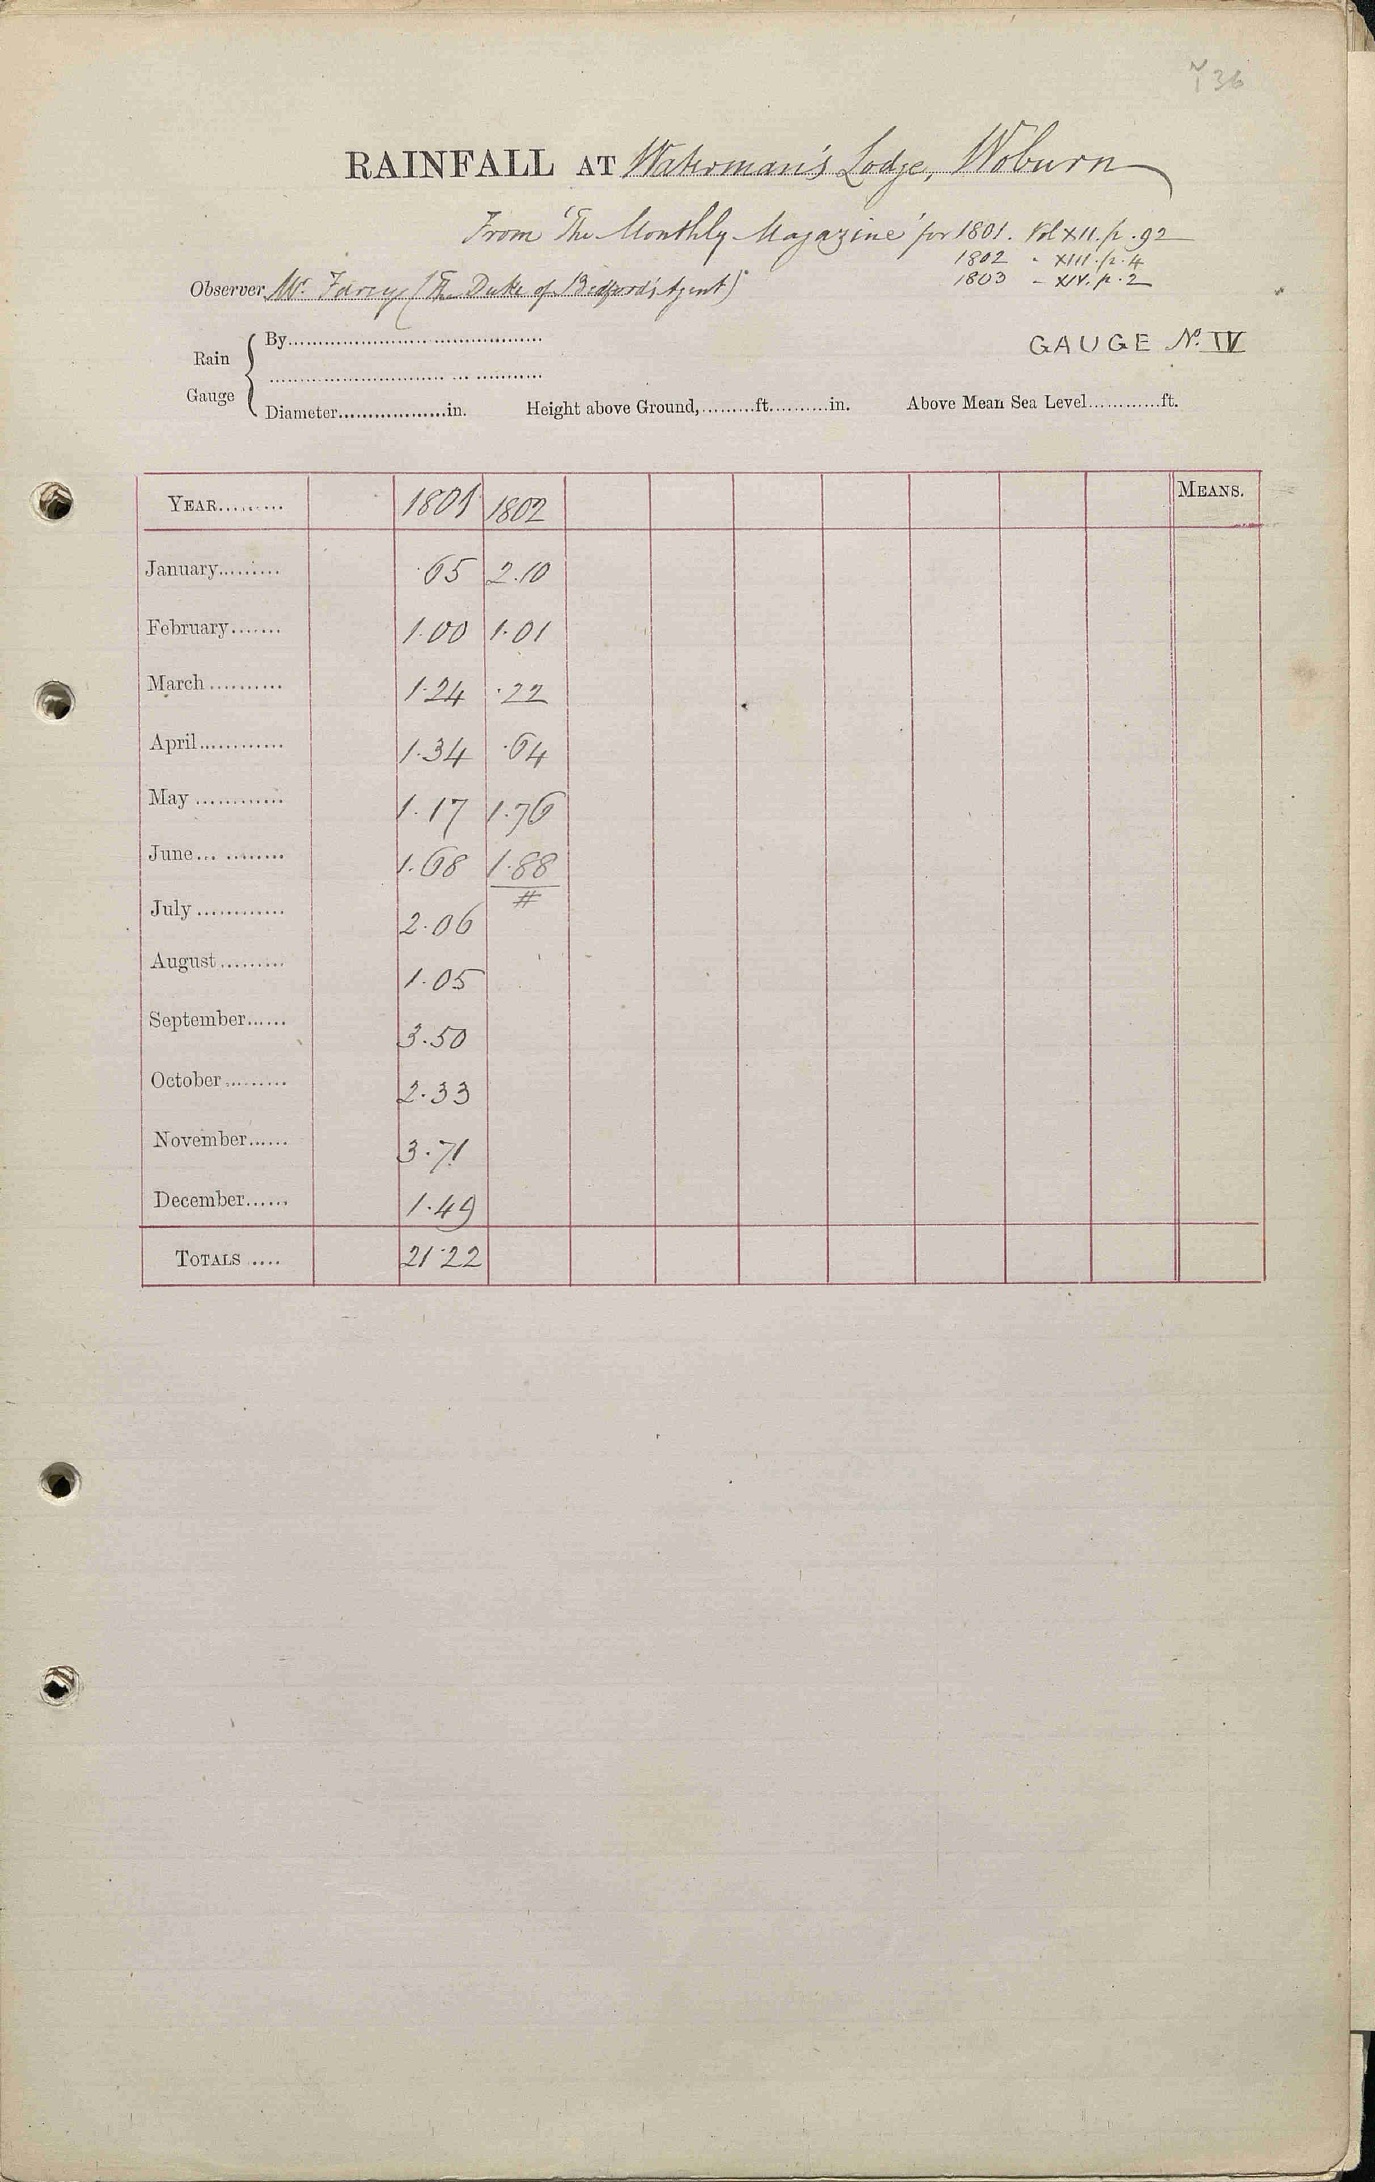 736
RAINFALL AT Waterman's Lodge, Woburn
From 'The Monthly Magazine' for 1801. Vol XII. p. 92
1802 - XIII. p. 4
1803 - XIV. p. 2
Observer Mr. Farey (The Duke of Bedford's Agent)
GAUGE No. IV
Rain Gauge { By..............................
Diameter..................in. Height above Ground,.........ft..........in. Above Mean Sea Level............ft.
YEAR......... 1801 1802 MEANS.
January......... .65 2.10
February....... 1.00 1.01
March.......... 1.24 .22
April............ 1.34 .64
May ............ 1.17 1.76
June... ........ 1.68 1.88
#
July ............ 2.06
August......... 1.05
September...... 3.50
October......... 2.33
November...... 3.71
December...... 1.49
TOTALS .... 21.22